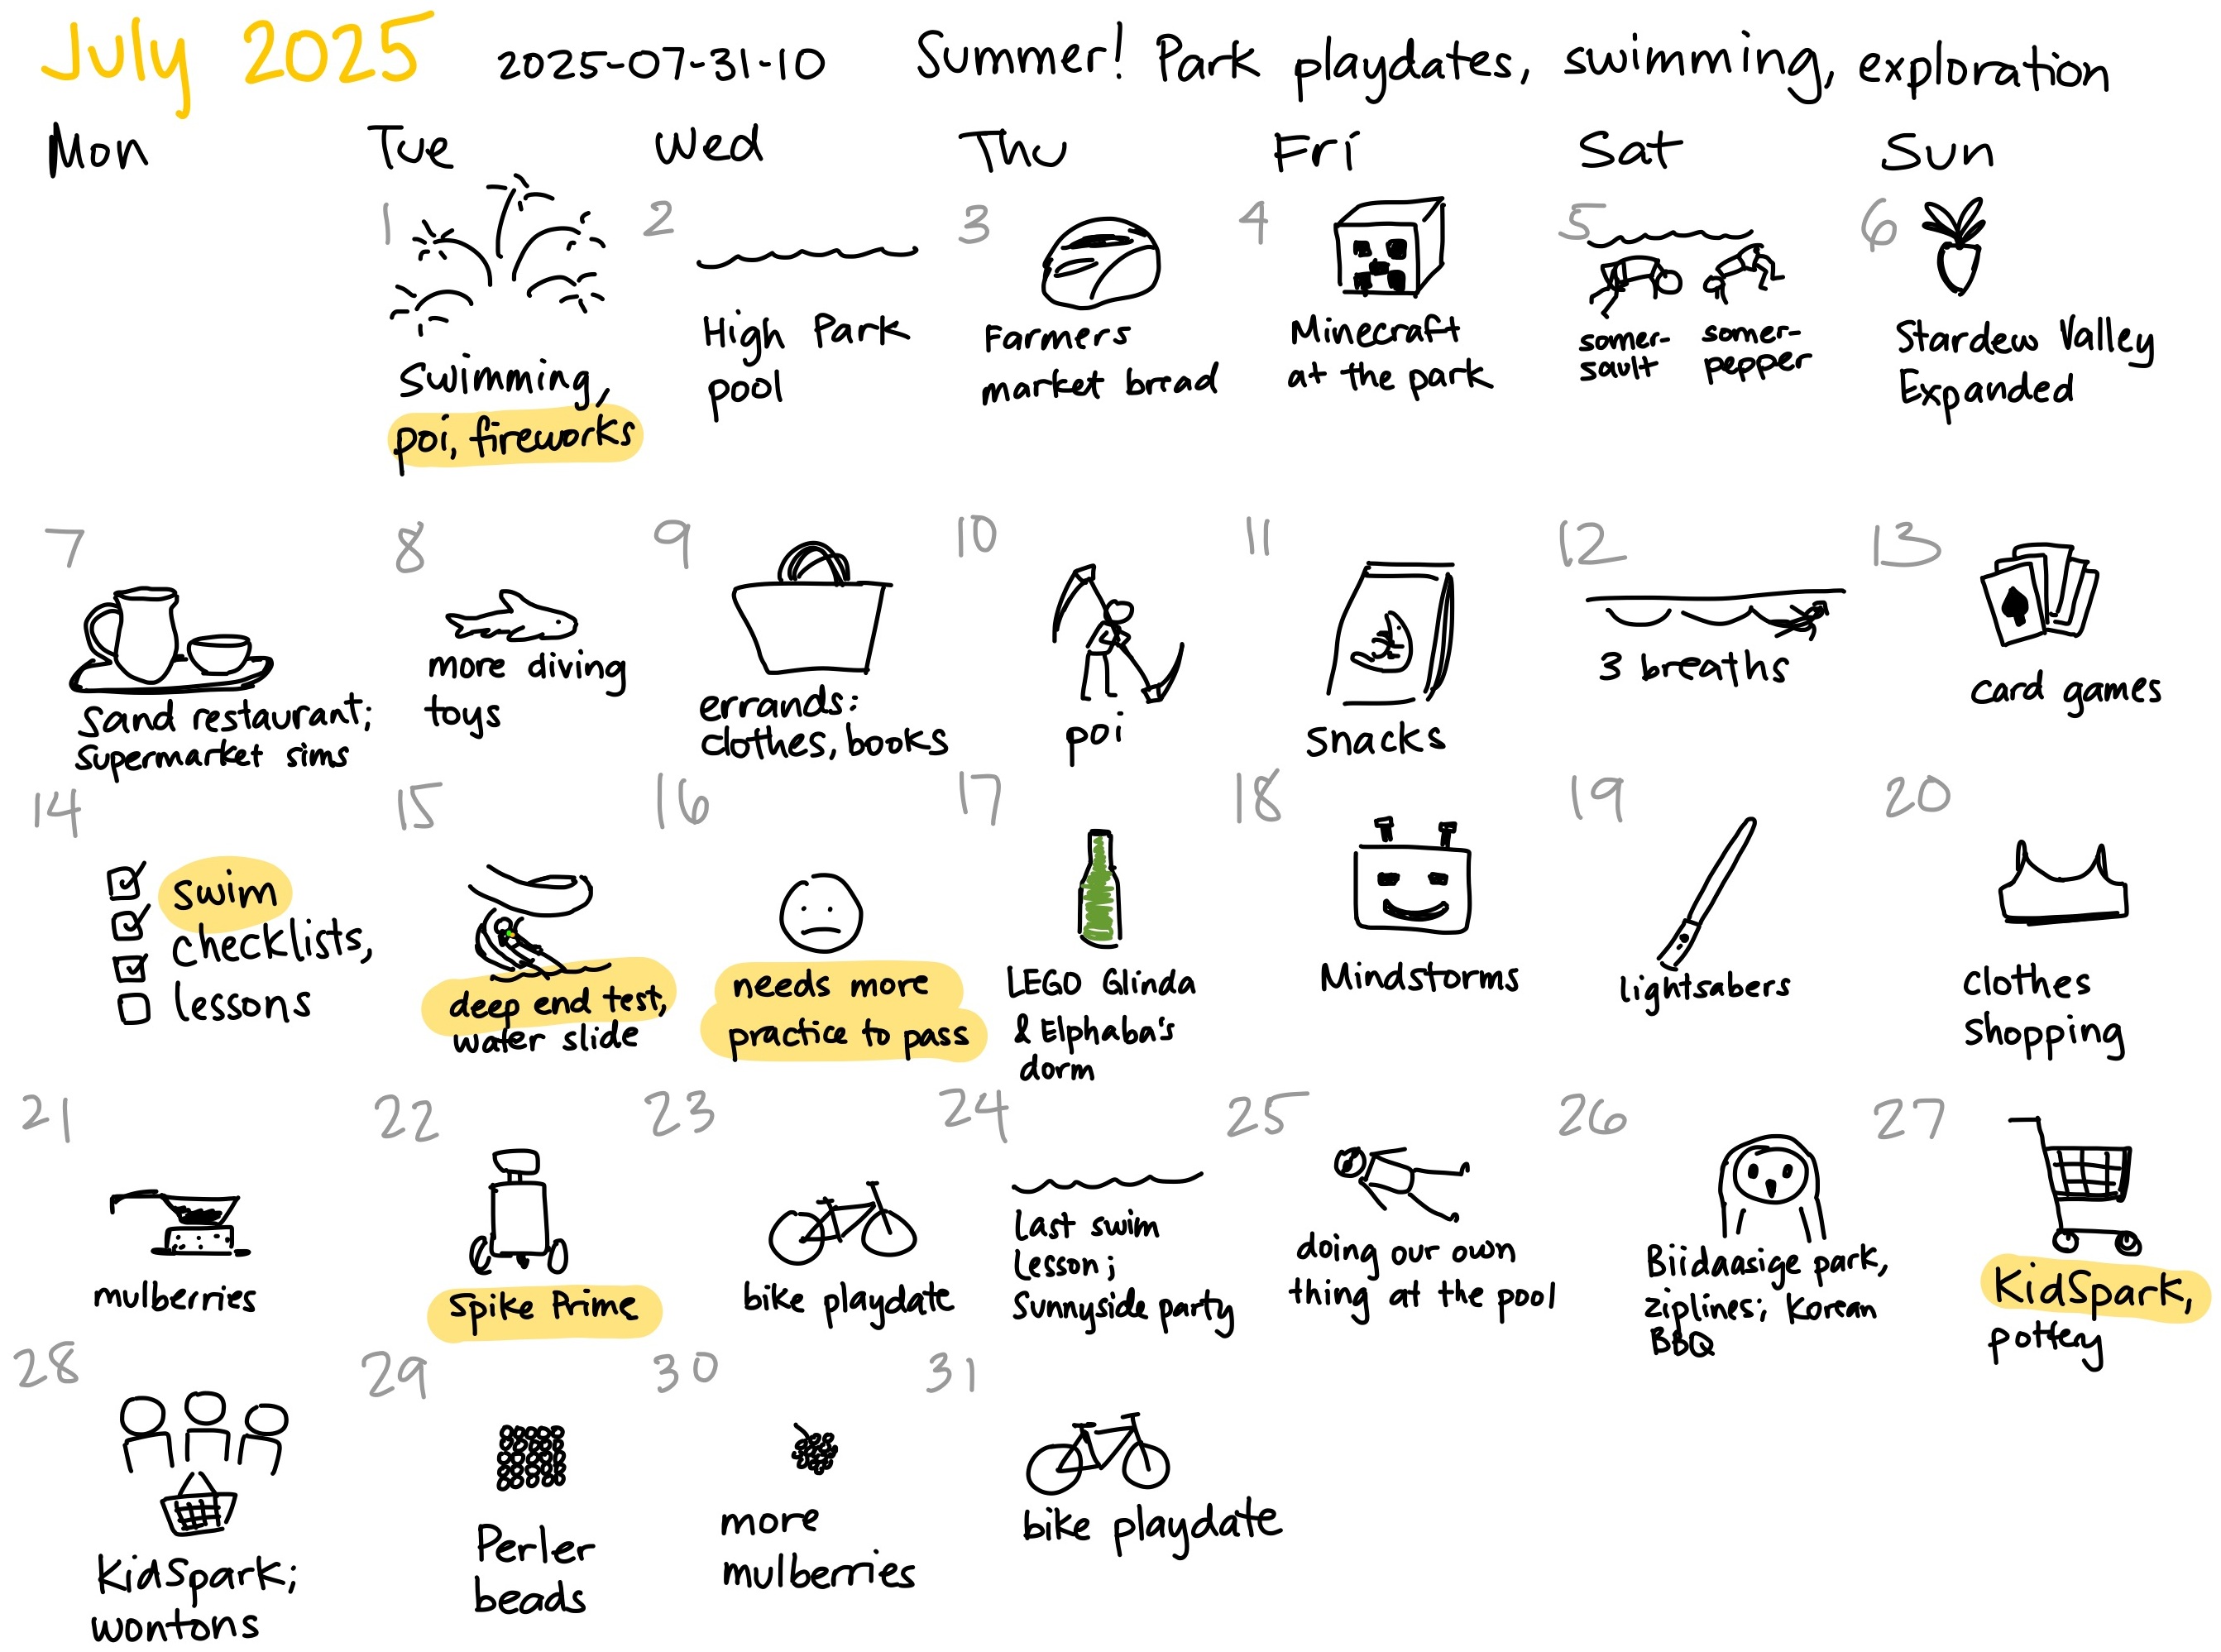 July 2025 2025-07-31-10 Summer! Park playdates, swimming, exploration
Mon Tue Wed Thu Fri Sat Sun
1
Swimming,
poi, fireworks
2
High Park
pool
3
Farmers
market bread
4
Minecraft
at the park
5
somer-
sault
somer-
pepper
6
Stardew Valley
Expanded
7
Sand restaurant;
supermarket sims
8
more diving
toys
9
errands:
clothes, books
10
poi
11
snacks
12
3 breaths
13
card games
14
swim
checklists,
lessons
15
deep end test,
water slide
16
needs more
practice to pass
17
LEGO Glinda
& Elphaba's
dorm
18
Mindstorms
19
lightsabers
20
clothes
shopping
21
mulberries
22
Spike Prime
23
bike playdate
24
last swim
lesson;
Sunnyside party
25
doing our own
thing at the pool
26
Biidaasige park,
ziplines; Korean
BBQ
27
KidSpark,
pottery
28
KidSpark;
wontons
29
Perler
beads
30
more
mulberries
31
bike playdate